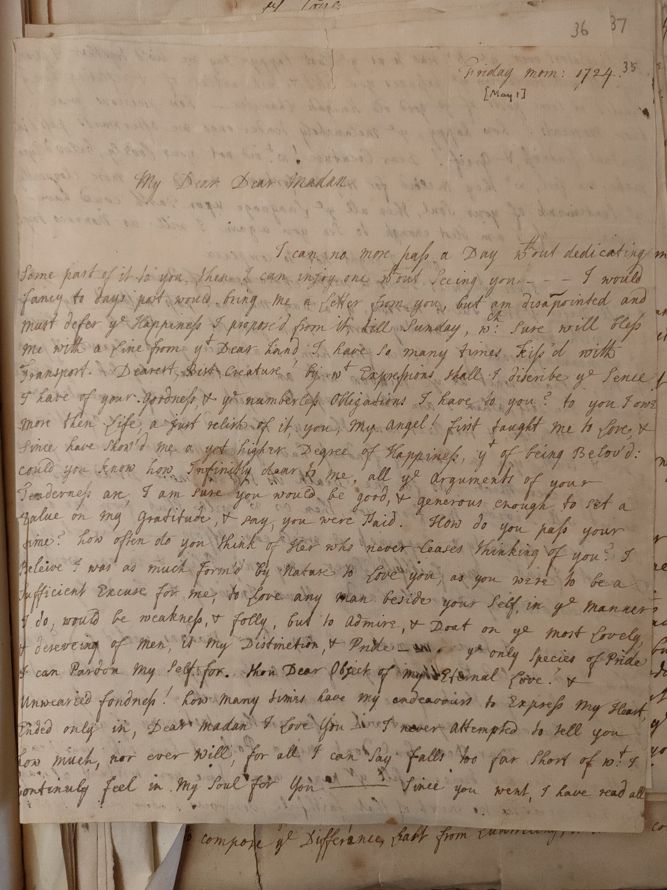 36 37
Friday morn: 1724. 35
[May 1]
My Dear Dear Madan
I can no more pass a Day wthout dedicating
Some part of it to you, then I can enjoy one wthout Seeing you - - - I would
fancy to days post would bring me a Letter from you, but am disapointed and
must defer ye Happiness I propose'd from it, till Sunday, wch Sure will bless
me with a Line from yt Dear hand I have So many times kiss'd with
Transport. Dearest, Best Creature! by wt Expressions shall I discribe ye Sence
I have of your goodness & ye numberless Obligations I have to you? to you I owe
more then Life, a just relish of it, you, my Angel! first taught me to Love, &
Since have Show'd me a yet higher Degree of Happiness, yt of being Belov'd:
could you know how Infinitly dear to me, all ye arguments of your
Tenderness are, I am Sure you would be good, & generous enough to set a
Value on my Gratitude, & say, you were Paid. How do you pass your
time? how often do you think of Her who never ceases thinking of you? I
Beleive I was as much form'd by Nature to Love you, as you were to be a
Sufficient Excuse for me, to Love any man beside your Self in ye Manner
I do, would be weakness, & folly, but to Admire, & Doat on ye most Lovely,
& deserveing of Men, is my Distinction & Pride ye only Species of Pride
I can Pardon my Self for. thou Dear Object of my Eternal Love! &
Unwearied fondness! how many times have my endeavours to Express my Heart,
Ended only in, Dear Madan I Love You I never attempted to tell you
how much, nor ever will, for all I can Say falls too far Short of wt I
continuly feel in my Soul for You ——— Since you went, I have read all
to compose ye Difference, hast from